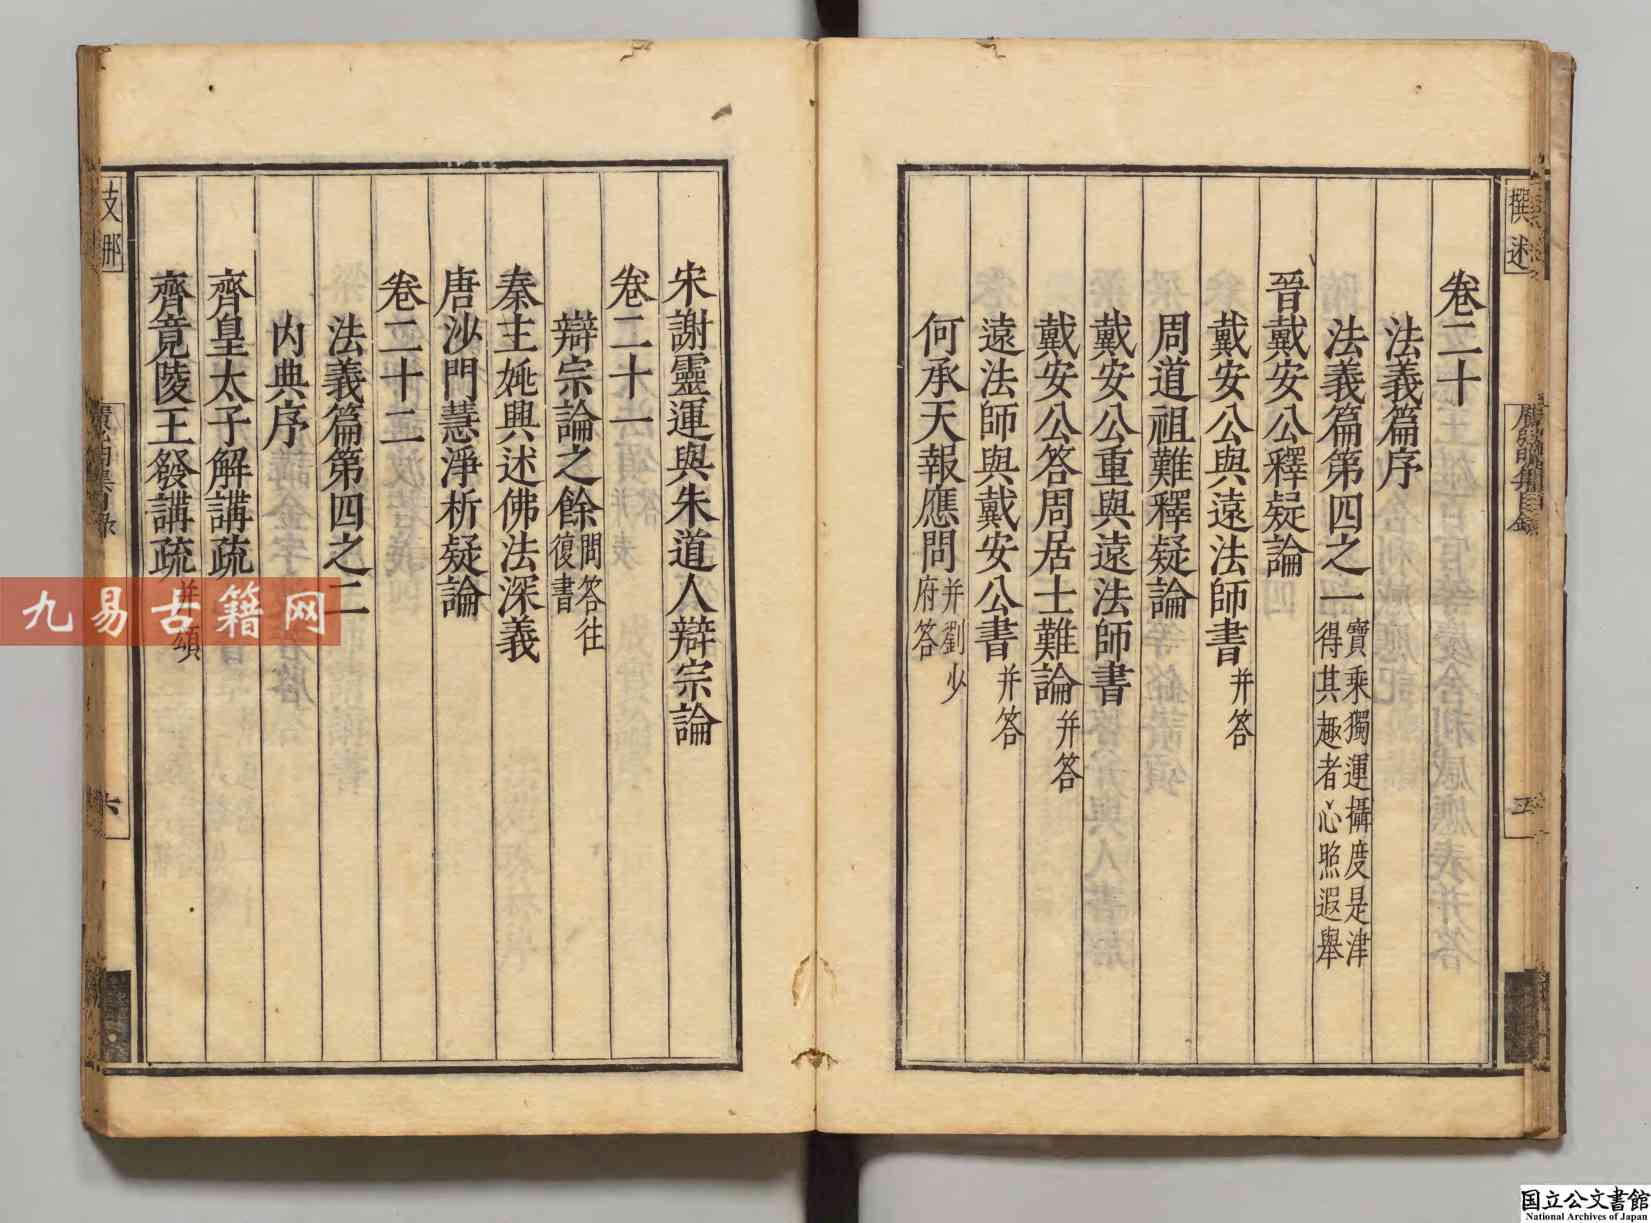 撰述
卷二十
法義篇序
法義篇第四之一寶乘獨運攝度是津得其趣者心照遐舉
晉戴安公釋疑論
戴安公與遠法師書并答
周道祖難釋疑論
戴安公重與遠法師書
戴安公答周居士難論并答
遠法師與戴安公書并答
何承天報應問并劉少府答
宋謝靈運與朱道人辯宗論
卷二十一
辯宗論之餘問答往復書
秦主姚興述佛法深義
唐沙門慧淨析疑論
卷二十二
法義篇第四之二
內典序
齊皇太子解講疏
齊竟陵王發講疏并頌
支那
六
九易古籍网
国立公文書館
National Archives of Japan